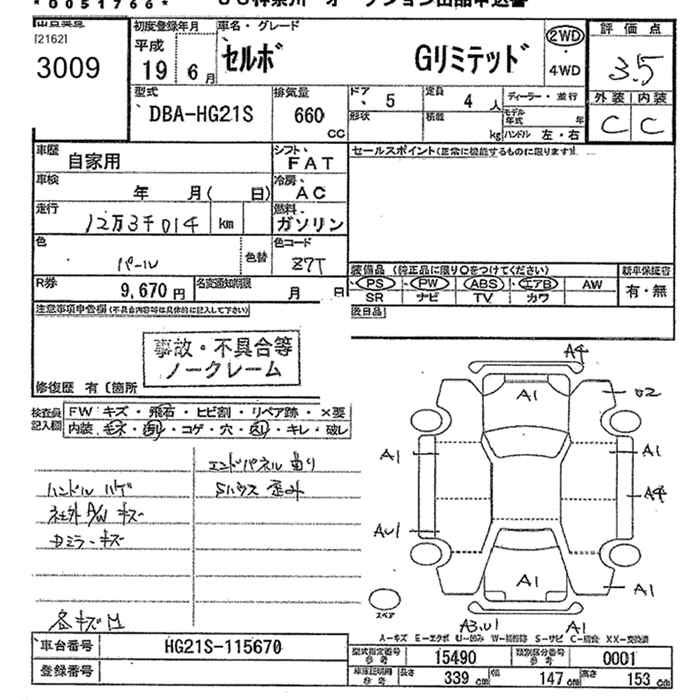 *0051766*
[2162]
3009
初度登録年月
平成
19年 6月
車名・グレード
セルボ Gリミテッド
2WD
・
4WD
評価点
3.5
外装 内装
C C
型式
DBA-HG21S
排気量
660
CC
ドア
5
定員
4 人
形状
積載
kg
ディーラー・並行
モデル年式 年
ハンドル 左・右
車歴
自家用
シフト
FAT
セールスポイント(正常に機能するものに限ります)
車検
年 月( 日)
冷房
AC
走行
12万3千014 km
燃料
ガソリン
色
パール
色替
色コード
Z7T
R券
9,670 円
名変通知期限
月 日
装備品 (純正品に限り○をつけてください)
PS・PW・ABS・エアB・AW
SR ナビ TV カワ
新車保証書
有・無
後日品
注意事項申告欄(不具合内容等は具体的に記入して下さい)
事故・不具合等
ノークレーム
修復歴 有(箇所
検査員
記入欄
FW キズ・飛石・ヒビ割・リペア跡・×要
内装・コゲ・穴・キレ・破レ
エンドパネル 曲り
ハンドル ハゲ
社外A/W キズ
Dミラーキズ
各キズ凹
A4
A1
U2
A1
A1
A4
AU1
A1
A1
A3.U1
A1
スペア
A-キズ E-エクボ U-凹み S-サビ XX-交換済
車台番号
HG21S-115670
登録番号
型式指定番号
参考
15490
類別区分番号
参考
0001
車庫証明用
参考
長さ
339 cm
幅
147 cm
高さ
153 cm